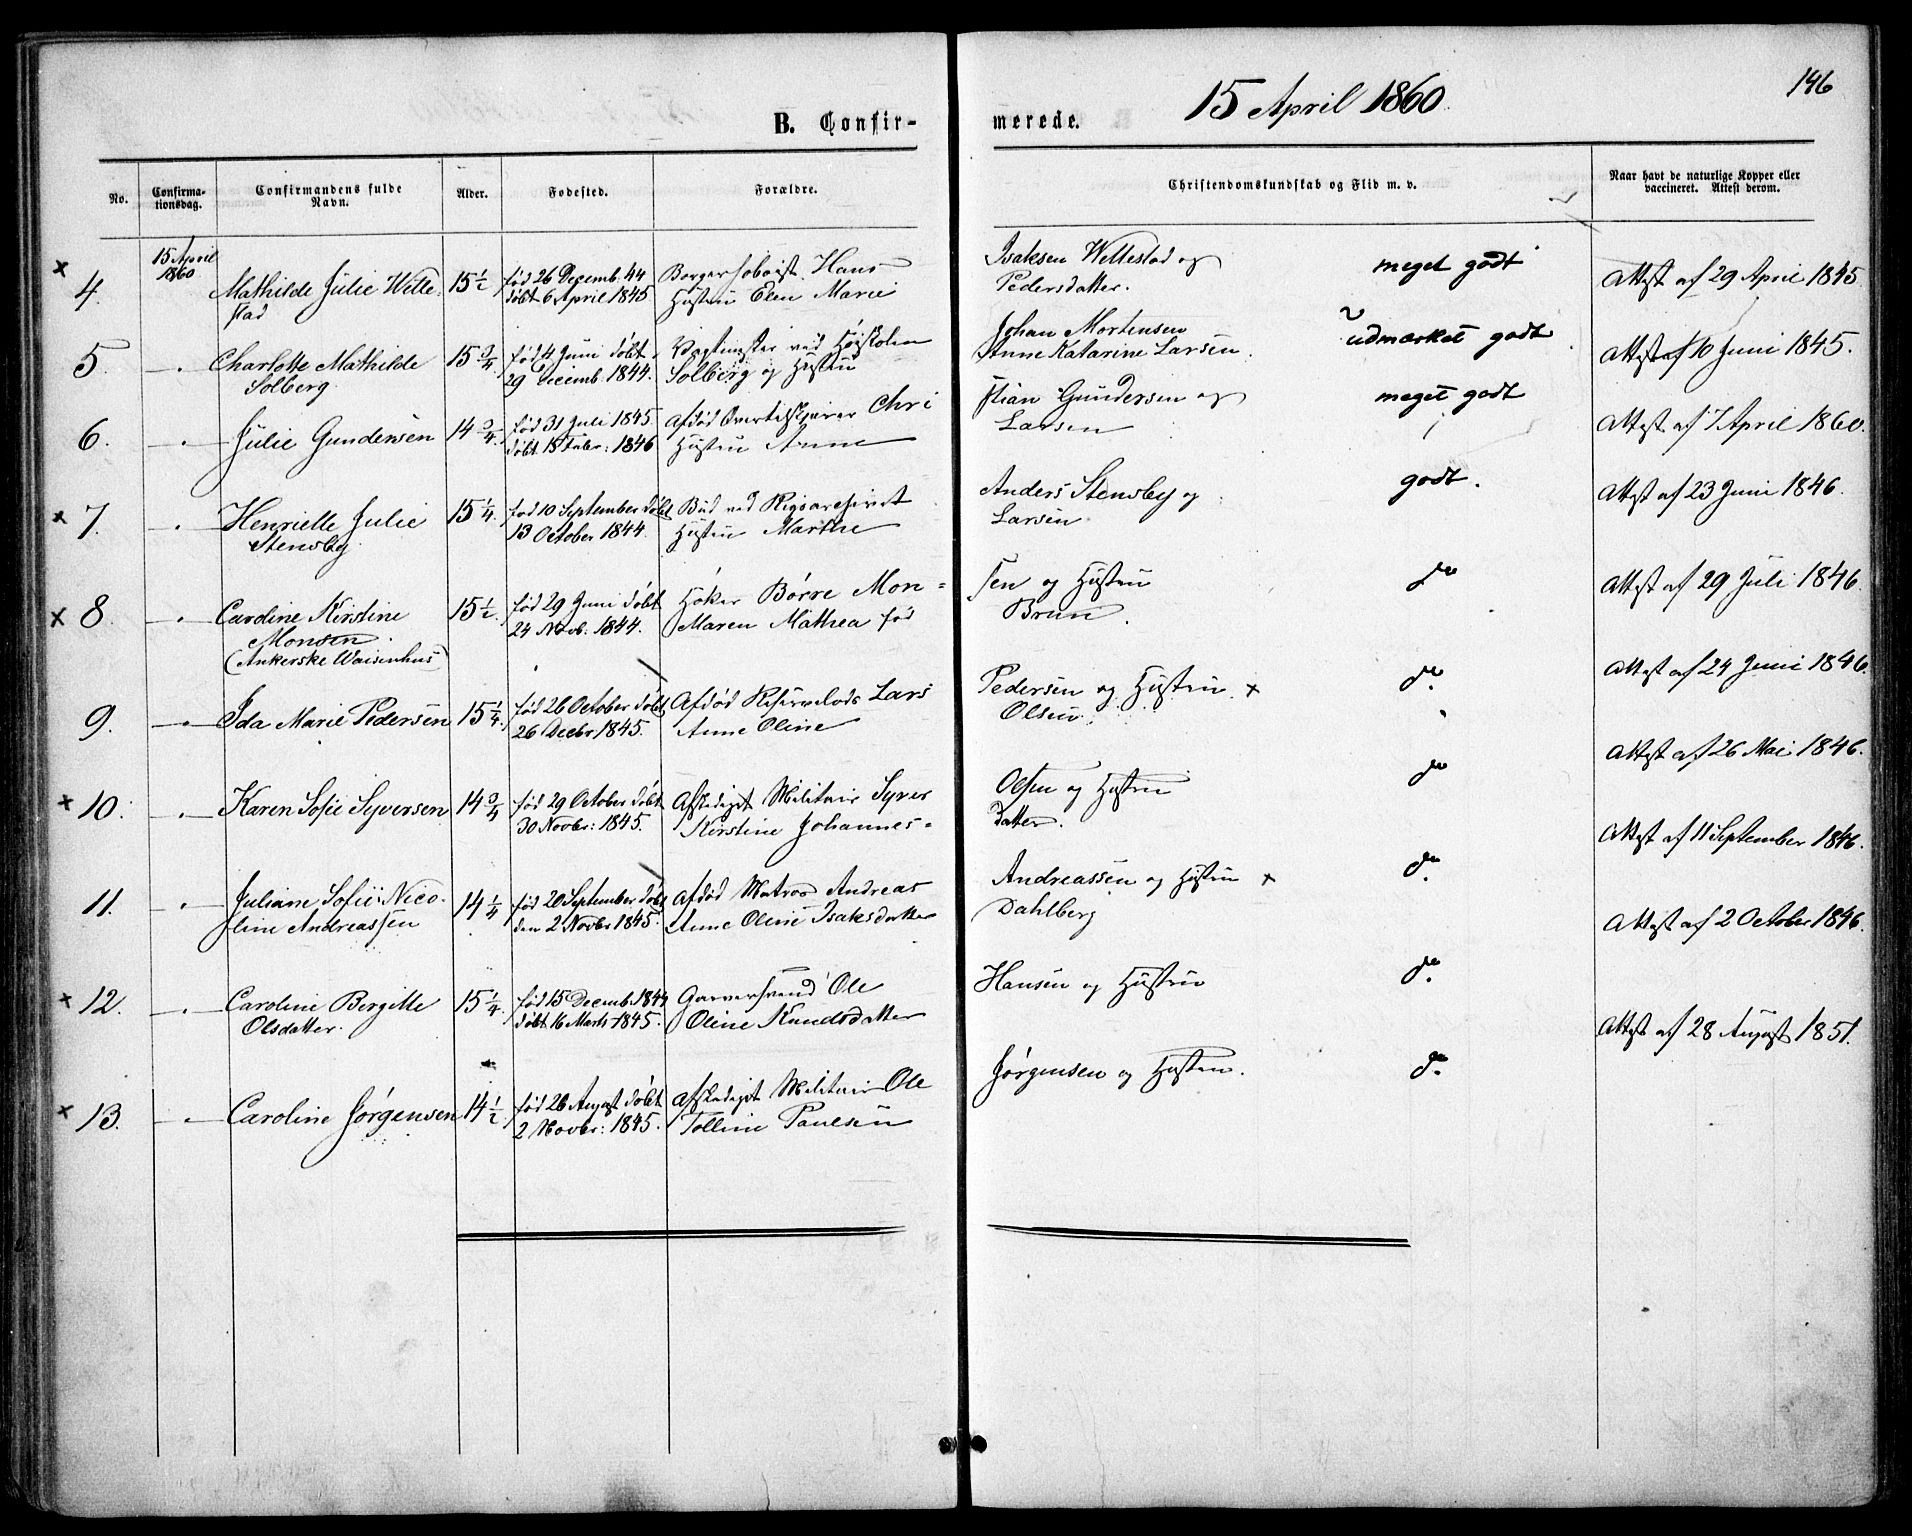 146
15 April 1860
B. Confir-
merede.
No.
Confirma-
tionsdag.
Confirmandens fulde
Navn.
Alder.
Fødested.
Forældre.
Christendomskundskab og Flid m. v.
Naar havt de naturlige Kopper eller
vaccineret. Attest derom.
15 April
1860
4. Mathilde Julie Welle-
stad
15 1/2
født 26 Decemb: 44
døbt 6 April 1845
Borger Hoboist Hans
Hustru Elen Marie
Isaksen Wellestad og
Pedersdatter.
meget godt
Attest af 29 April 1845
5. Charlotte Mathilde
Solberg
15 3/4
født 4 Juni døbt
29 Decemb. 1844.
Vagtmester ved Høiskolen
Solberg og Hustru
Johan Mortensen
Anne Katarine Larsen.
udmærket godt
Attest af 10 Juni 1845.
6. Julie Gundersen
14 3/4.
født 31 Juli 1845
døbt 15 Febr: 1846
Afdød Chri
Hustru Anne
stian Gundersen og
Larsen
meget godt
Attest af 7 April 1860.
7. Henriette Julie
Stensby
15 1/4.
født 10 September døbt
13 October 1844.
Bud ved Rigsarchivet
Hustru Marthe
Anders Stensby og
Larsen
godt.
Attest af 23 Juni 1846.
8. Caroline Kirstine
Monsen
(Ankerske Waisenhus)
15 1/2.
født 29 Juni døbt
24 Novb. 1844.
Høker Børre Mon-
Maren Mathea fød
sen og Hustru
Brun.
do
Attest af 29 Juli 1846.
9. Ida Marie Pedersen
15 1/4.
født 26 October døbt
26 Decbr. 1845.
Afdød Lars
Anne Oline
Pedersen og Hustru x
Olsen.
do.
Attest af 24 Juni 1846.
10. Karen Sofie Syversen
14 3/4
født 29 October døbt
30 Novbr: 1845.
Afskediget Militair Syver
Kirstine Johannes-
Olsen og Hustru
datter.
do
Attest af 26 Mai 1846.
11. Juliane Sofie Nico-
line Andreassen
14 1/4
født 20 September døbt
den 2 Novbr 1845.
Afdød Matros Andreas
Anne Oline Isaksdatter
Andreassen og Hustru x
Dahlberg
do.
Attest af 11 September 1846.
12. Caroline Bergitte
Olsdatter.
15 1/4.
født 15 Decemb. 1844
døbt 16 Marts 1845.
Garversvend Ole
Oline Knudsdatter
Hansen og Hustru
do.
Attest af 2 October 1846.
13. Caroline Jørgensen
14 1/2.
født 26 August døbt
2 Novbr: 1845.
Afskediget Militair Ole
Tolline Paulsen
Jørgensen og Hustru.
do.
Attest af 28 August 1851.